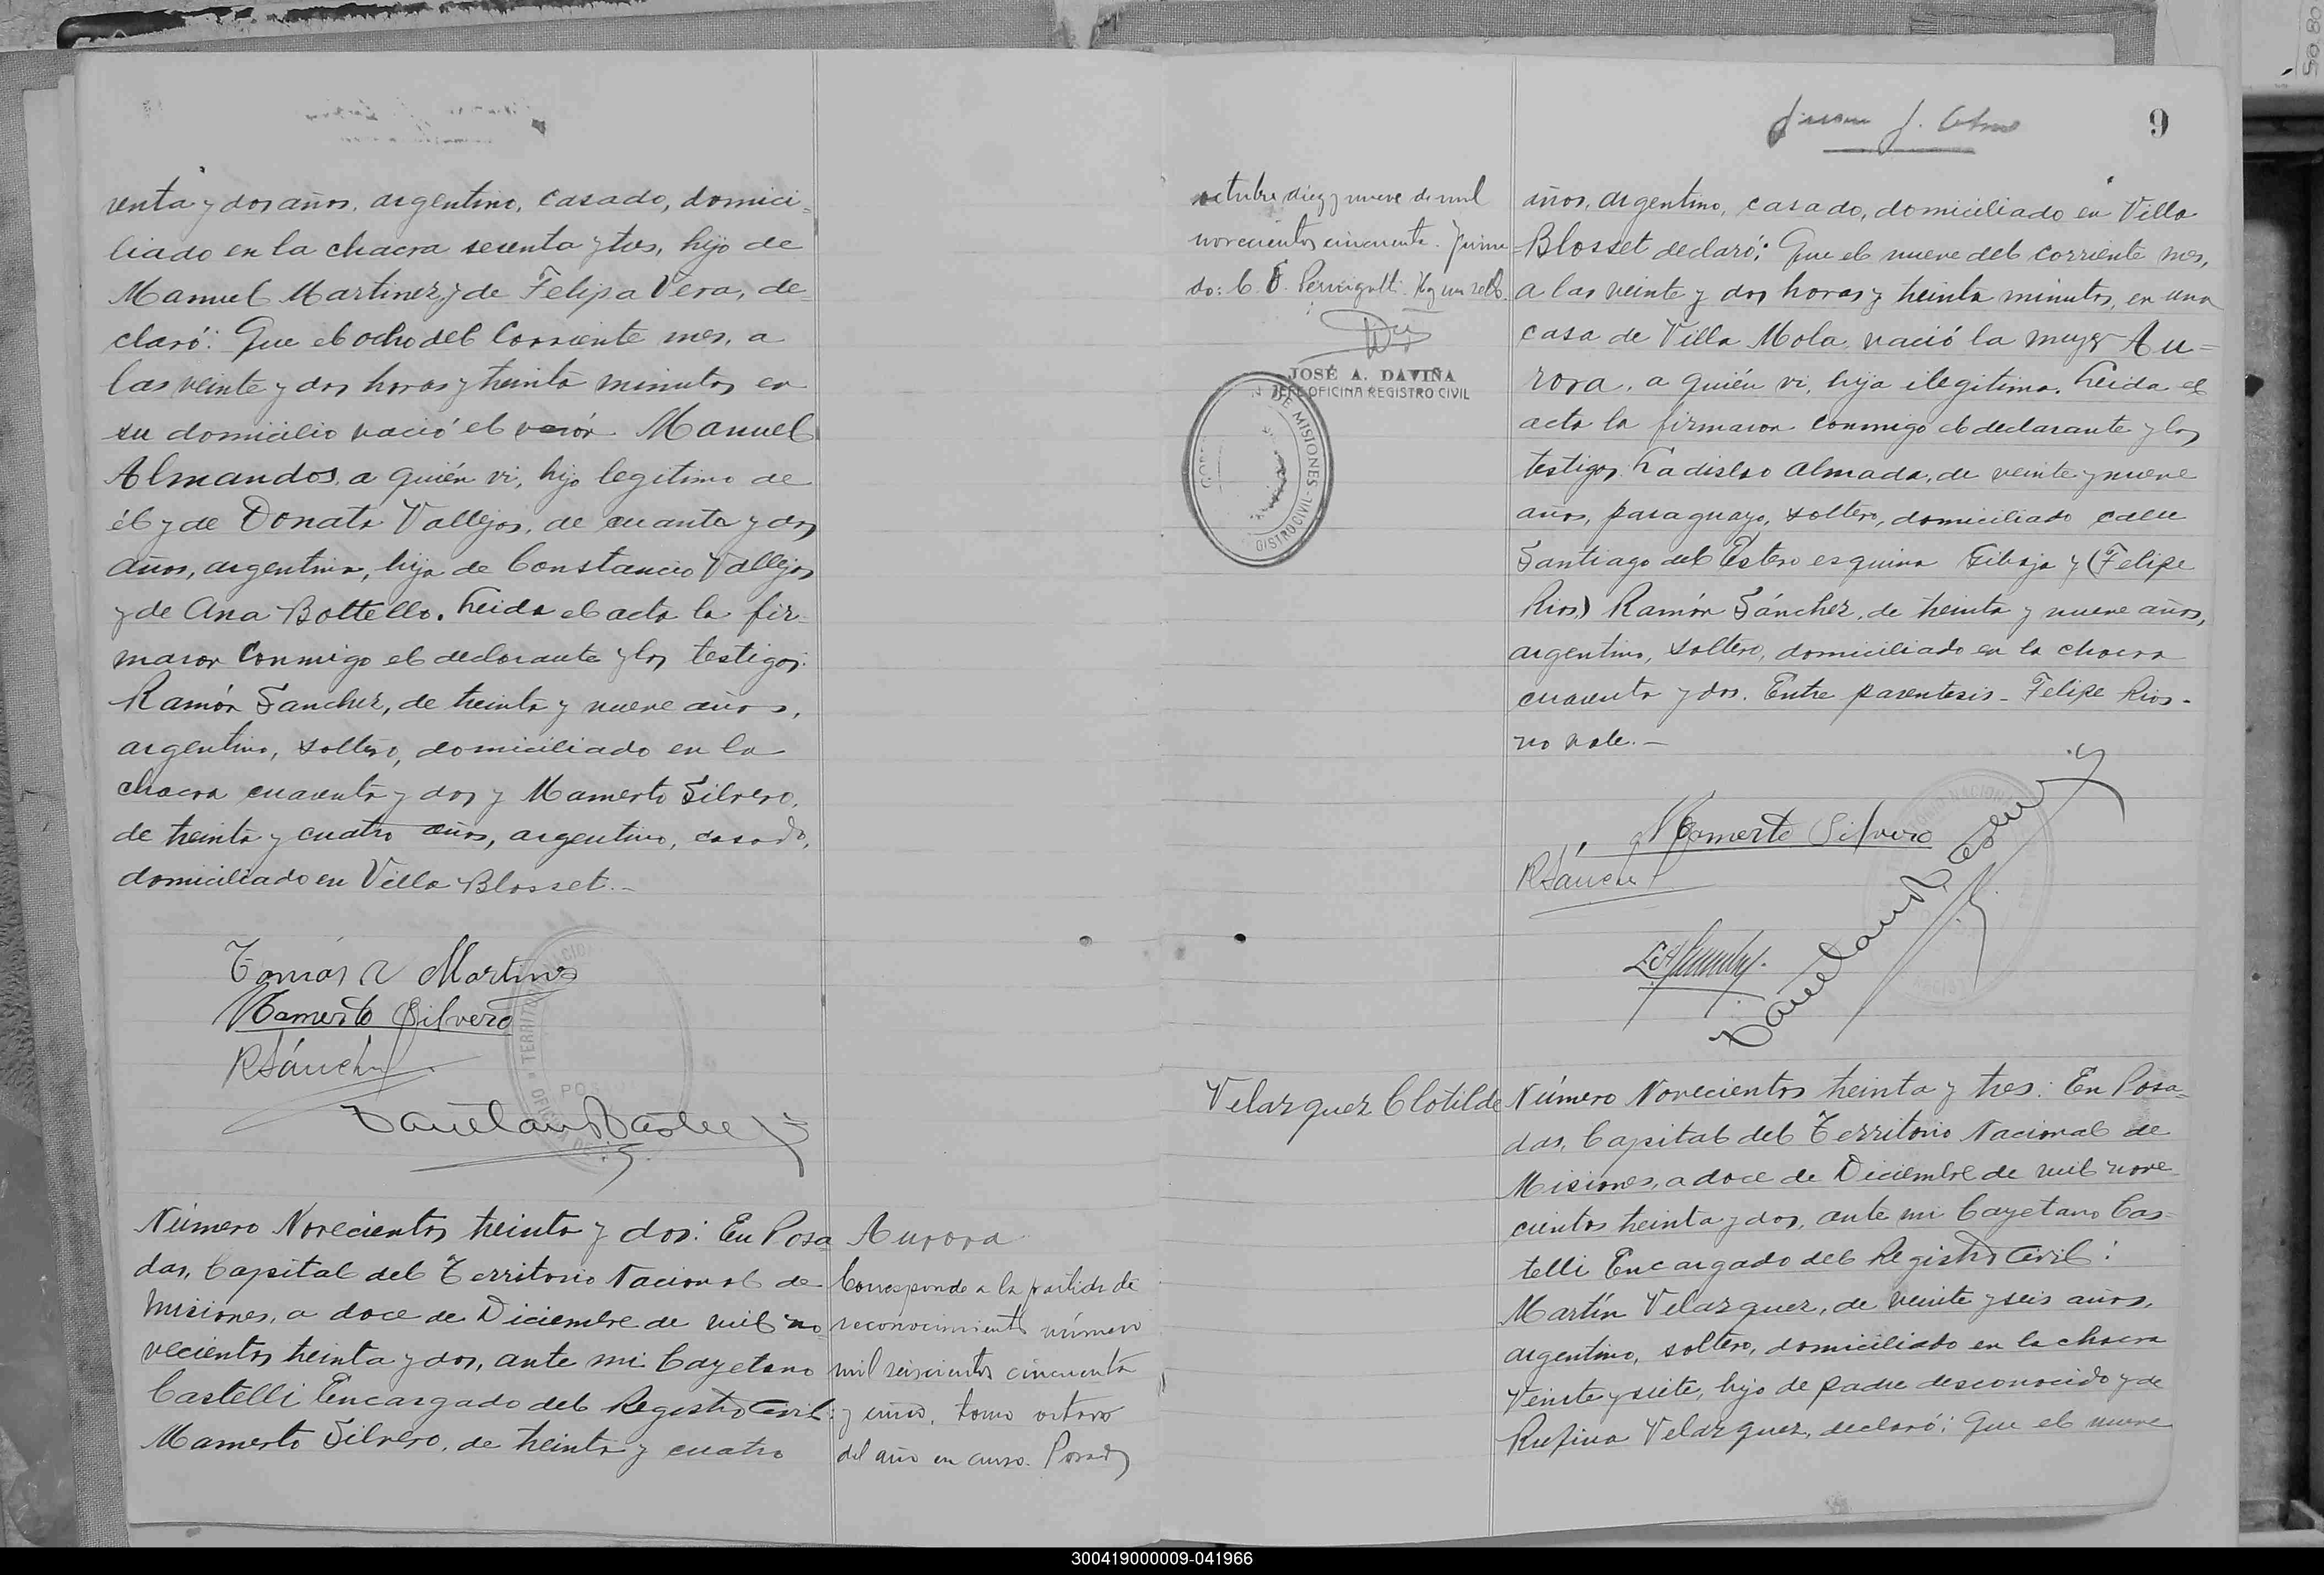 venta y dos años, argentino, casado, domici-
liado en la chacra sesenta y tres, hijo de
Manuel Martinez y de Felipa Vera, de-
claró: Que el ocho del Corriente mes, a
las veinte y dos horas y treinta minutos en
su domicilio nació el varón Manuel
Almandos, a quién vi, hijo legitimo de
él y de Donata Vallejos, de cuarenta y dos
años, argentina, hija de Constancio Vallejos
y de Ana Bottello. Leida el acta la fir-
maron Conmigo el declarante y los testigos:
Ramón Sanchez, de treinta y nueve años,
argentino, soltero, domiciliado en la
chacra cuarenta y dos y Mamerto Silvero,
de treinta y cuatro años, argentino, casado,
domiciliado en Villa Blosset.-
Tomás Martinez
Mamerto Silvero
RSánchez
Cayetano Castelli
Número Novecientos treinta y dos: En Posa-
das, Capital del Territorio Nacional de
Misiones, a doce de Diciembre de mil no-
vecientos treinta y dos, ante mi Cayetano
Castelli Encargado del Registro Civil:
Mamerto Silvero, de treinta y cuatro
Aurora
Corresponde a la partida de
reconocimiento número
mil seiscientos cincuenta
y cinco, tomo octavo
del año en curso. Posadas
9
octubre diez y nueve de mil
novecientos cincuenta. Firma-
do: C. Pernigotti. Hay un sello.
JOSÉ A. DAVIÑA
JEFE OFICINA REGISTRO CIVIL
DE MISIONES
años, argentino, casado, domiciliado en Villa
Blosset declaró: Que el nueve del corriente mes,
a las veinte y dos horas y treinta minutos, en una
casa de Villa Mola nació la mujer Au=
rora, a quién vi, hija ilegitima. Leida el
acta la firmaron conmigo el declarante y los
testigos: Ladislao Almada, de veinte y nueve
años, paraguayo, soltero, domiciliado calle
Santiago del Estero esquina Gibaja y (Felipe
Rios) Ramón Sánchez, de treinta y nueve años,
argentino, soltero, domiciliado en la chacra
cuarenta y dos. Entre parentesis - Felipe Rios -
no vale.-
Mamerto Silvero
RSánchez
Cayetano Castelli
Velazquez Clotilde
Número Novecientos treinta y tres: En Posa-
das, Capital del Territorio Nacional de
Misiones, a doce de Diciembre de mil nove-
cientos treinta y dos, ante mi Cayetano Cas-
telli Encargado del Registro Civil:
Martín Velazquez, de veinte y seis años,
argentino, soltero, domiciliado en la chacra
Veinte y siete, hijo de padre desconocido y de
Rufina Velázquez, declaró: Que el nueve
300419000009-041966